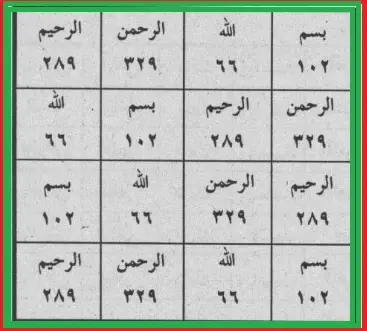 بسم الله الرحمن الرحيم
١٠٢ ٦٦ ٣٢٩ ٢٨٩
الرحمن الرحيم بسم الله
٣٢٩ ٢٨٩ ١٠٢ ٦٦
الرحيم الرحمن الله بسم
٢٨٩ ٣٢٩ ٦٦ ١٠٢
بسم الله الرحمن الرحيم
١٠٢ ٦٦ ٣٢٩ ٢٨٩